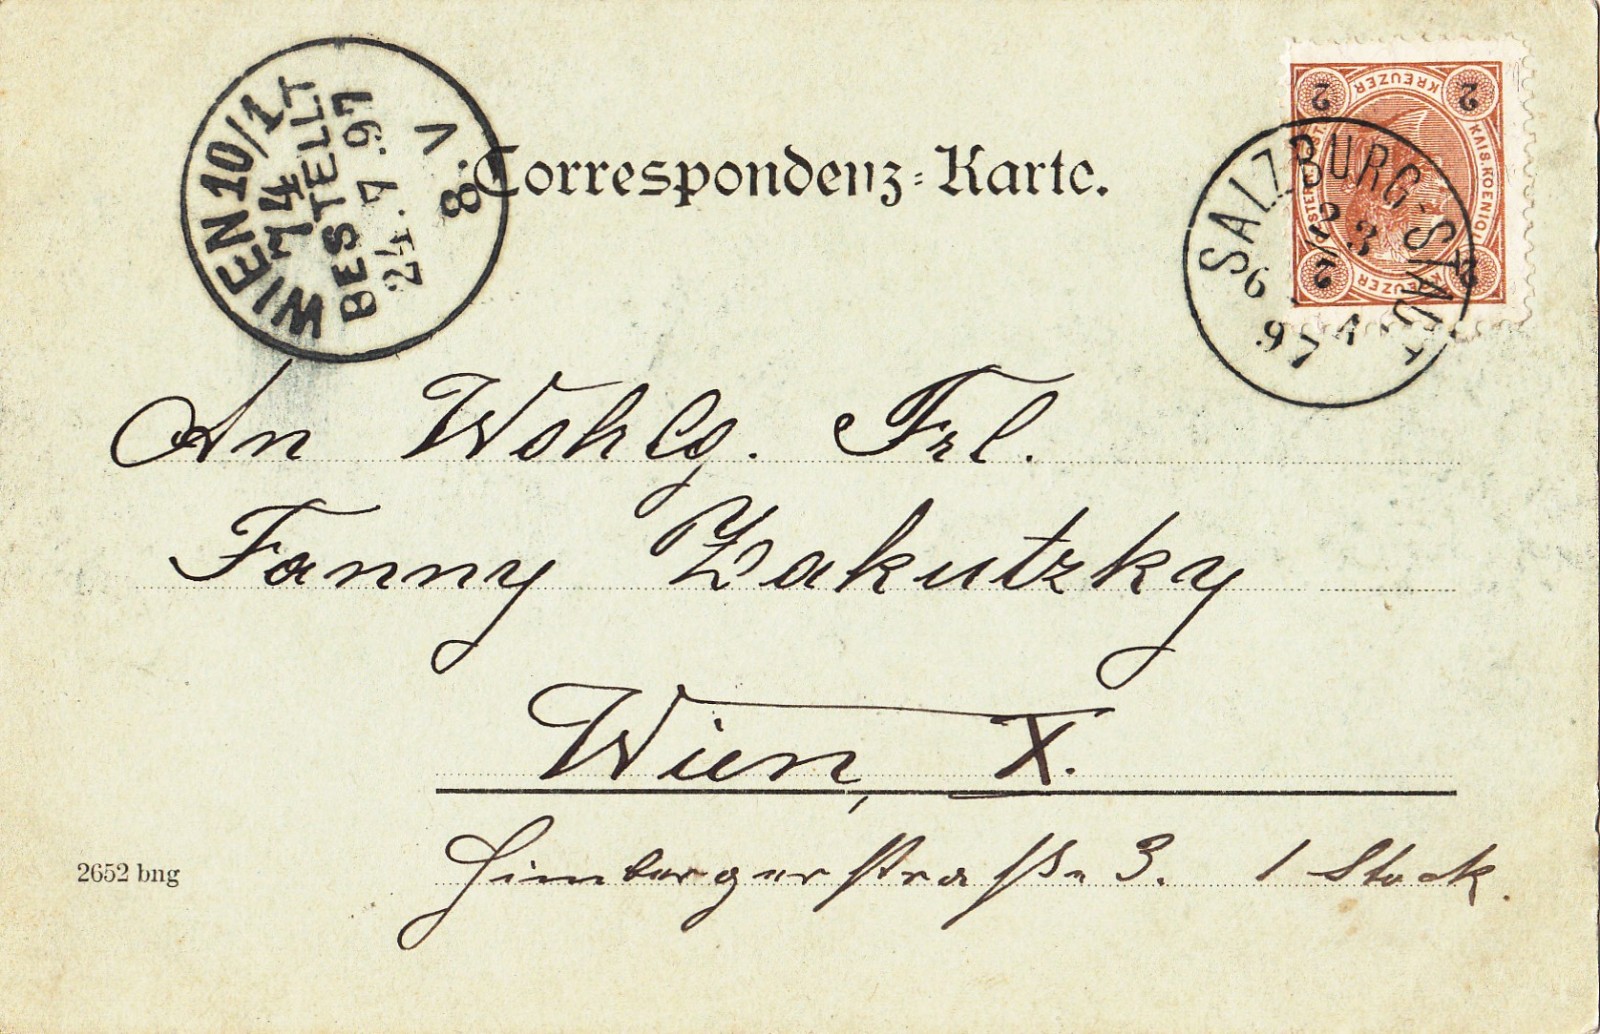 WIEN 10/1
74
BESTELLT
24.7.97
8.V
Correspondenz-Karte.
KREUZER
2 2
KAIS. KOENIGL.
KREUZER
2 2
SALZBURG-STADT
23
7
97
An Wohlg. Frl.
Fanny Zakutzky
Wien, X.
Himbergerstraße 3. 1 Stock.
2652 bng